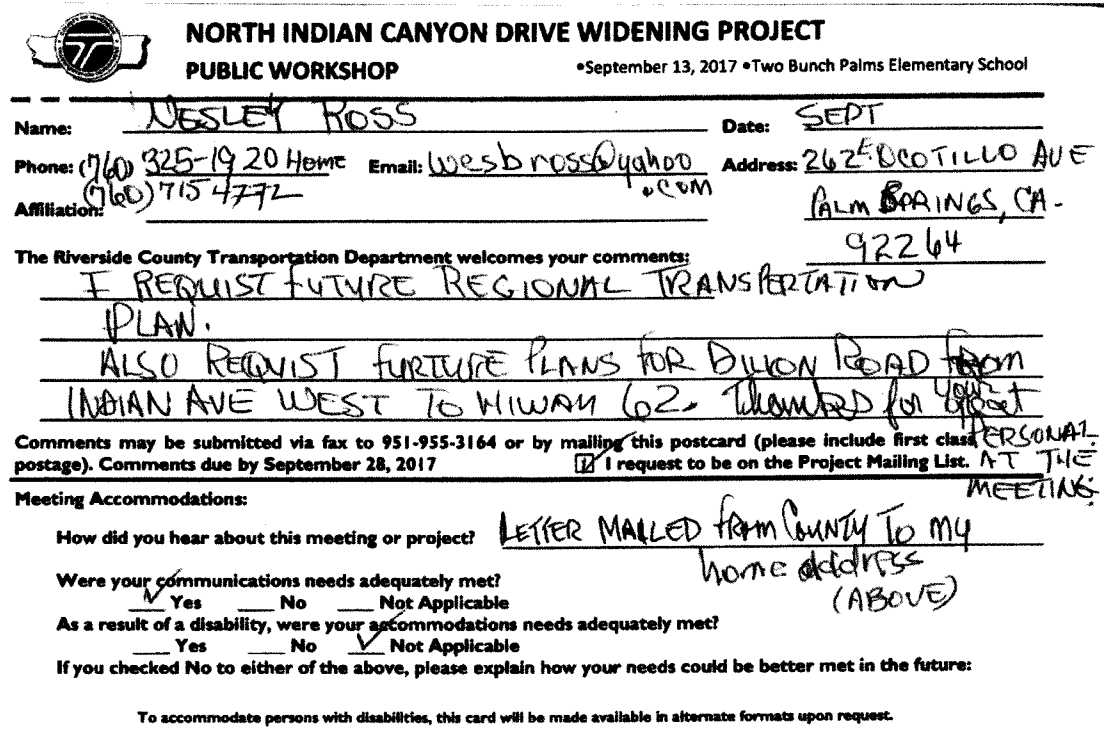 NORTH INDIAN CANYON DRIVE WIDENING PROJECT
PUBLIC WORKSHOP •September 13, 2017 •Two Bunch Palms Elementary School
Name: WESLEY ROSS Date: SEPT
Phone: (760) 325-1920 Home Email: wesbross@yahoo Address: 262 E OCOTILLO AVE
(760) 715 4772 .COM
Affiliation: PALM SPRINGS, CA.
92264
The Riverside County Transportation Department welcomes your comments:
I REQUIST FUTURE REGIONAL TRANSPERTATION
PLAN.
ALSO REQUIST FURTURE PLANS FOR DILLON ROAD FROM
INDIAN AVE WEST TO HIWAY 62. for your great
Comments may be submitted via fax to 951-955-3164 or by mailing this postcard (please include first class PERSONAL
postage). Comments due by September 28, 2017 I request to be on the Project Mailing List. AT THE
MEETING.
Meeting Accommodations:
How did you hear about this meeting or project? LETTER MAILED FROM COUNTY TO MY
home address
(ABOVE)
Were your communications needs adequately met?
Yes No Not Applicable
As a result of a disability, were your accommodations needs adequately met?
Yes No Not Applicable
If you checked No to either of the above, please explain how your needs could be better met in the future:
To accommodate persons with disabilities, this card will be made available in alternate formats upon request.